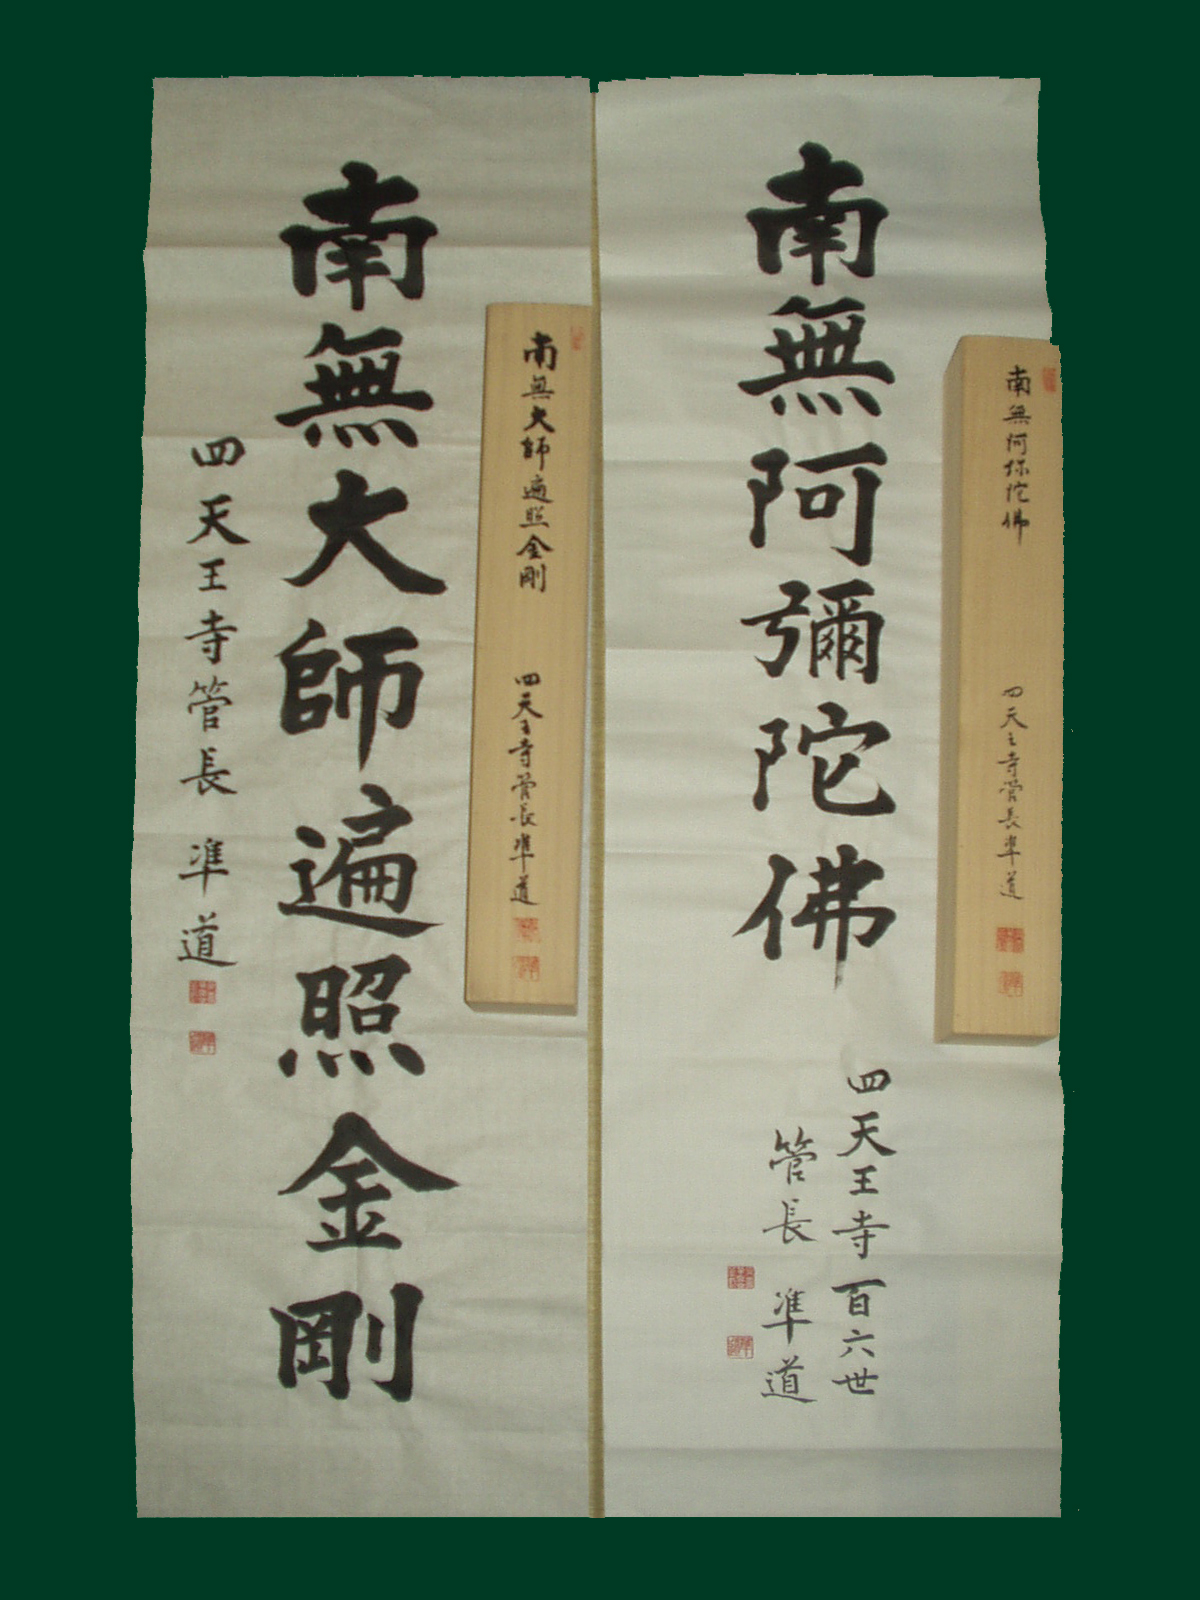 南無阿弥陀佛
四天王寺管長凖道
南無阿彌陀佛
四天王寺百六世
管長 凖道
南無大師遍照金剛
四天王寺管長凖道
南無大師遍照金剛
四天王寺管長 凖道